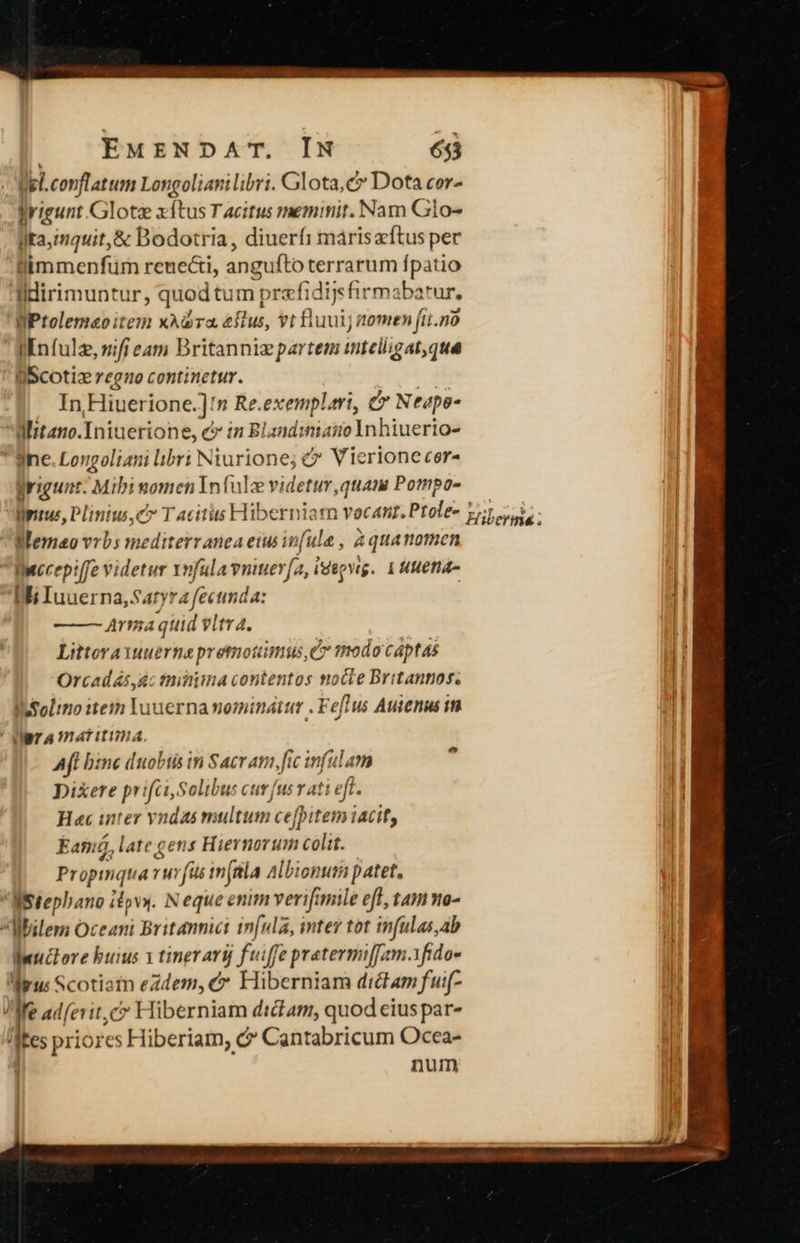 EMENDAT. IN 63
el.conflatum Longolianilibri. Glota,& Dota cor-
rigunt.Glotæ æstus Tacitus meminit. Nam Glo-
ta,inquit,& Bodotria, diuersi maris æstus per
immensum reuecti, angusto terrarum spatio
dirimuntur, quod tum præsidijs firmabatur.
Ptolemæo item κλῶτα æstus, vt fluuij nomen sit.nō
Insulæ, nisi eam Britanniæ partem intelligat,quæ
Scotiæ regno continetur.
In Hiuerione.]in Re.exemplari, & Neapo-
litano.Iniuerione, & in Blandiniano Inhiuerio-
ne. Longoliani libri Niurione; & Vierione cor-
rigunt. Mihi nomen Insulæ videtur,quam Pompo-
nius, Plinius,& Tacitus Hiberniam vocant. Ptole-
Hibernia:
lemæo vrbs mediterranea eius insula, à qua nomen
accepisse videtur insula vniuersa, ἰουερνίς. Iuuena-
li Iuuerna,Satyra secunda:
—— Arma quid vltra.
Littora Iuuernæ promouimus,& modo captas
Orcadas,ac minima contentos nocte Britannos.
Solino item Iuuerna nominatur . Festus Auienus in
ora maritima.
Ast hinc duobus in Sacram,sic insulam
Dixere prisci,Solibus cursus rati est.
Hæc inter vndas multum cespitem iacit,
Eamq́, late gens Hiernorum colit.
Propinqua rursus insula Albionum patet.
Stephano ἰέρνη. Neque enim verisimile est, tam no-
bilem Oceani Britannici insulā, inter tot insulas,ab
auctore huius Itinerarij fuisse prætermissam.Isido-
rus Scotiam eādem, & Hiberniam dictam fuis-
se adserit,& Hiberniam dictam, quod eius par-
tes priores Hiberiam, & Cantabricum Ocea-
num